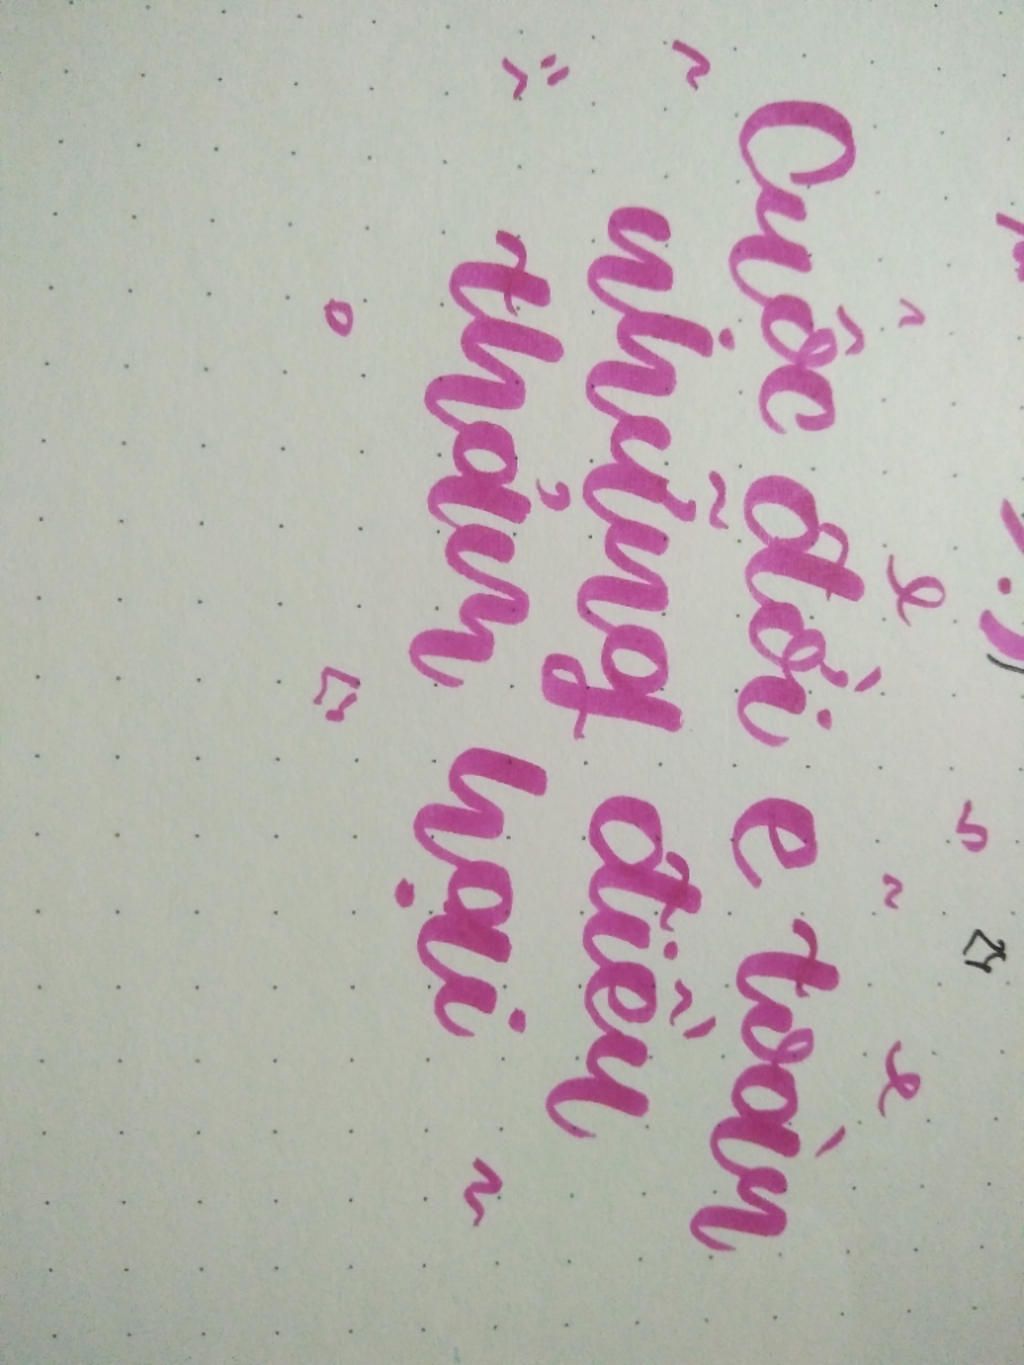 Cuộc đời e toàn
những điều
thảm hại